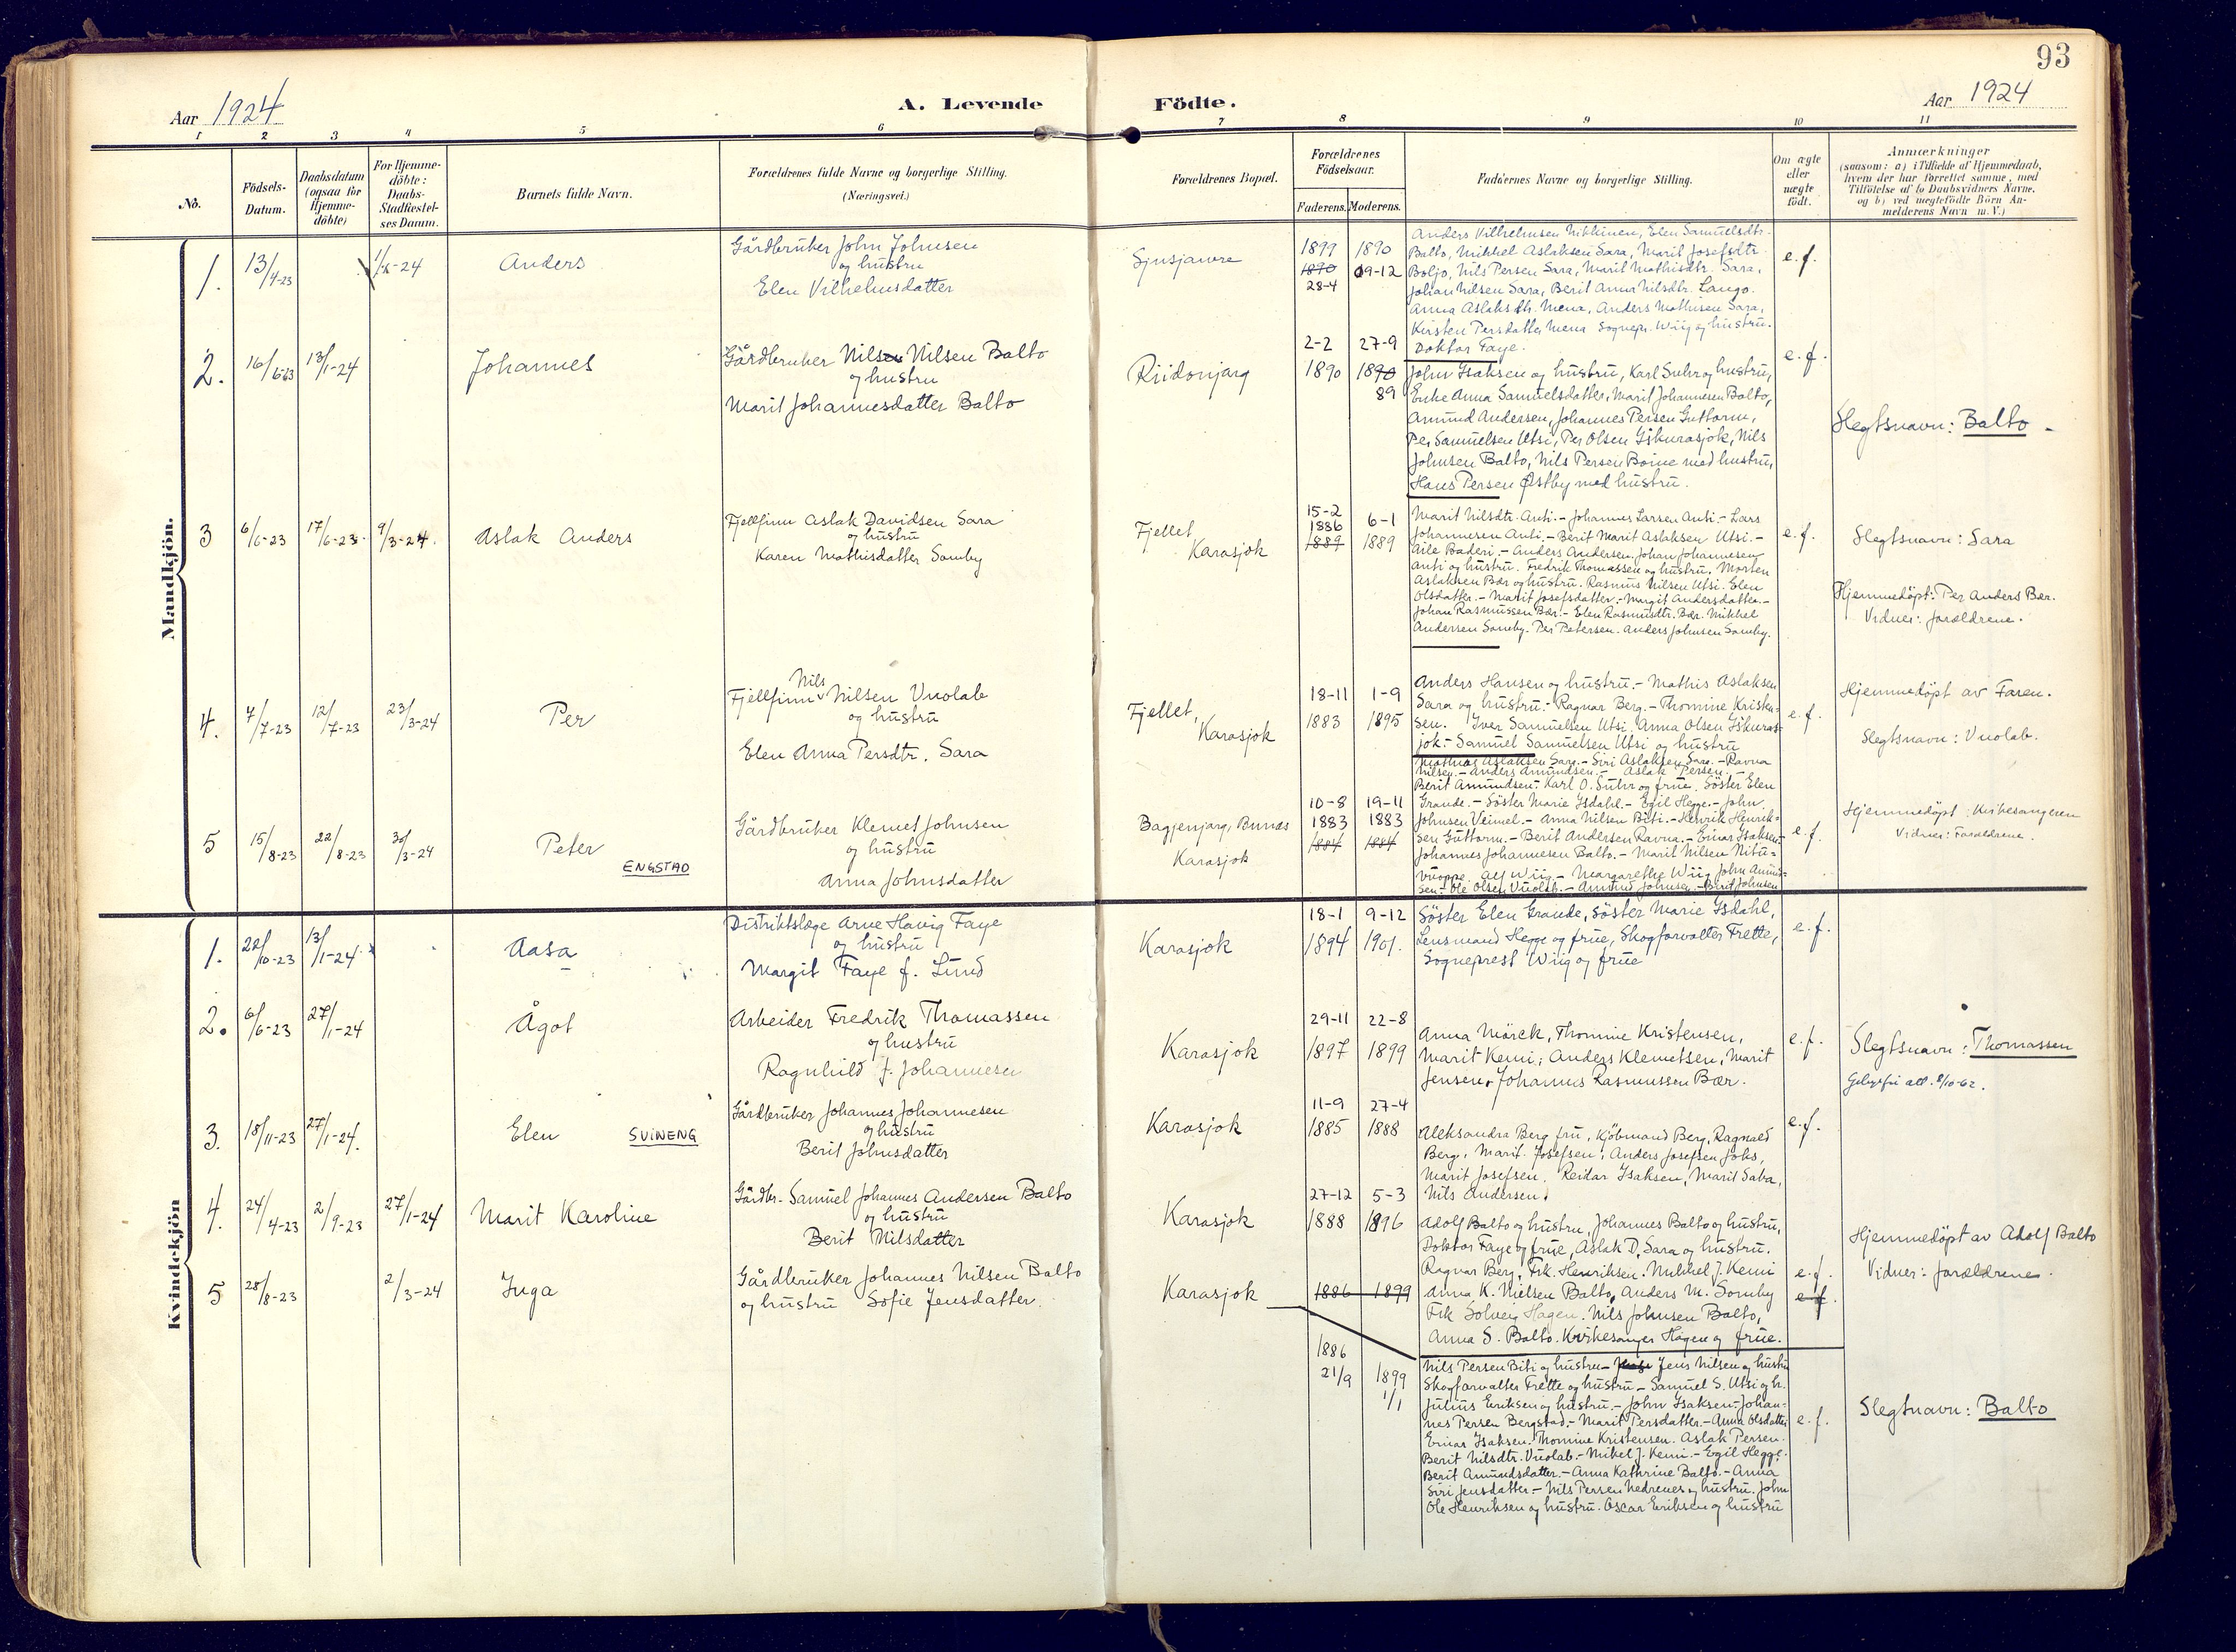 93
Aar 1924
A. Levende
Födte.
Aar 1924
1 2 3 4 5 6 7 8 9 10 11
No.
Födsels-
Datum.
Daabsdatum
(ogsaa for
Hjemme-
döbte)
For Hjemme-
döbte:
Daabs-
Stadfæstel-
ses Datum.
Barnets fulde Navn.
Forældrenes fulde Navne og borgerlige Stilling.
(Næringsvei.)
Forældrenes Bopæl.
Forældrenes
Födselsaar.
Faderens. Moderens.
Faddernes Navne og borgerlige Stilling.
Om ægte
eller
uægte
födt.
Anmærkninger
(saasom: a) i Tilfælde af Hjemmedaab,
hvem der har forrettet samme, med
Tilföielse af to Daabsvidners Navne.
og b) ved uegtefödte Börn An-
melderens Navn m. V.)
Mandkjön.
1. 13/4-23 -24 Anders
Gårdbruker John Johnsen
og hustru
Elen Vilhelmsdatter
1899 1890
1890 09-12
28-4
Anders Vilhelmsen Nikkinen, Elen Samuelsdtr.
Balto, Mikkel Aslaksen Sara, Marit Josefsdtr.
Boljo, Nils Persen Sara, Marit Mathisdtr. Sara,
Johan Nilsen Sara, Berit Anna Nilsdtr. Laugo.
Anna Aslaksdtr. Mena, Anders Mathisen Sara,
Kirsten Persdatter Mena Sognepr. Wiig og hustru.
Doktor Faye.
e. f.
2. 16/6-23 13/1-24 Johannes
Gårdbruker Nilsen Nilsen Balto
og hustru
Marit Johannesdatter Balto
Riidonjarg
2-2 27-9
1890 1890
89
John Isaksen og hustru, Karl Suhr og hustru,
Enke Anna Samuelsdatter, Marit Johannesen Balto,
Amund Andersen, Johannes Persen Guttorm,
Per Samuelsen Utsi, Per Olsen Iskurasjok, Nils
Johnsen Balto, Nils Persen Boine med hustru,
Hans Persen Østby med hustru.
e. f.
Slegtsnavn: Balto -
3 6/6-23 17/6-23. 9/3-24. Aslak Anders
Fjellfinn Aslak Davidsen Sara
og hustru
Karen Mathisdatter Somby
Fjellet
Karasjok
15-2
1886 6-1
1889 1889
Marit Nilsdtr. Anti. - Johannes Larsen Anti. - Lars
Johannesen Anti. - Berit Marit Aslaksen Utsi. -
Aile Baderi. - Anders Andersen. Johan Johannesen
Anti og hustru. Fredrik Thomassen og hustru. Morten
Aslaksen Bær og hustru. Rasmus Nilsen Utsi. Elen
Olsdatter. - Marit Josefsdatter. - Margit Andersdatter. -
Johan Rasmussen Bær. - Elen Rasmusdtr. Bær. Mikkel
Andersen Somby. Per Petersen. Anders Johnsen Somby.
e. f.
Slegtsnavn: Sara
Hjemmedöpt: Per Anders Bær.
Vidner: forældrene.
4. 7/7-23 12/7-23 23/3-24 Per
Nils
Fjellfinn Nilsen Vuolab
og hustru
Elen Anna Persdtr. Sara
Fjellet,
Karasjok
18-11 1-9
1883 1895
Anders Hansen og hustru. - Mathis Aslaksen
Sara og hustru. - Ragnar Berg. - Thomine Kristen-
sen. Iver Samuelsen Utsi. Anna Olsen Iskuras-
jok. - Samuel Samuelsen Utsi og hustru
e. f.
Hjemmedöpt av Faren.
Slegtsnavn: Vuolab.
5 15/8-23 22/8-23 30/3-24 Peter
ENGSTAD
Gårdbruker Klemet Johnsen
og hustru
Anna Johnsdatter
Bagjenjarg, Bunæs
Karasjok
10-8 19-11
1883 1883
1884 1884
Mathis Aslaksen Sara. - Siri Aslaksen Sara. - Ravna
Nilsen. - Anders Amundsen. - Aslak Persen. -
Berit Amundsen. Karl O. Suhr og frue. Söster Elen
Grande. - Söster Marie Isdahl. - Egil Hegge. - John
Johnsen Veimel. - Anna Nilsen Biti. - Henrik Henrik-
sen Guttorm. - Berit Andersen Ravna. - Einar Isaksen.
Johannes Johannesen Balto. - Marit Nilsen Nitu-
vuoppe. Alf Wiig. - Margarethe Wiig. John Amund-
sen. - Ole Olsen Vuolab. - Amund Johnsen. - Berit Johnsen
e. f.
Hjemmedöpt: Kirkesangeren
Vidner: Forældrene.
Kvindekjön
1. 22/10-23 13/1-24 Aasa
Distriktslæge Arne Havig Faye
og hustru
Margit Faye f. Lund
Karasjok
18-1 9-12
1894 1901.
Söster Elen Grande, Söster Marie Isdahl,
Lensmand Hegge og frue, Skogforvalter Frette,
Sogneprest Wiig og frue
e. f.
2. 6/6-23 27/1-24 Ågot
Arbeider Fredrik Thomassen
og hustru
Ragnhild f. Johannesen
Karasjok
29-11 22-8
1897 1899
Anna Mörck, Thomine Kristensen,
Marit Kemi; Anders Klemetsen, Marit
Jensen, Johannes Rasmussen Bær.
e. f.
Slegtsnavn: Thomassen
3. 18/11-23 27/1-24. Elen SVINENG
Gårdbruker Johannes Johannesen
og hustru
Berit Johnsdatter
Karasjok
11-9 27-4
1885 1888
Aleksandra Berg fru, Kjöbmand Berg, Ragnald
Berg, Marit Josefsen, Anders Josefsen Joks,
Marit Josefsen. Reidar Isaksen, Marit Saba,
Nils Andersen.
e. f.
4. 24/4-23 2/9-23 27/1-24 Marit Karoline
Gårdbr. Samuel Johannes Andersen Balto
og hustru
Berit Nilsdatter
Karasjok
27-12 5-3
1888 1896
Adolf Balto og hustru, Johannes Balto og hustru,
Doktor Faye og frue, Aslak D. Sara og hustru.
Ragnar Berg, Frk. Henriksen. Mikkel J. Kemi
Anna K. Nielsen Balto, Anders M. Somby
Frk Solveig Hagen. Nils Johnsen Balto,
Anna S. Balto. Kirkesanger Hagen og frue.
e. f.
Hjemmedöpt av Adolf Balto
Vidner: forældrene.
5 28/8-23 2/3-24 Inga
Gårdbruker Johannes Nilsen Balto
og hustru Sofie Jensdatter.
Karasjok
1886 1899
e f.
1886
21/9 1899
1/1
Nils Persen Biti og hustru - Jens Nilsen og hustru
Skogforvalter Frette og hustru - Samuel S. Utsi og h.
Julius Eriksen og hustru. - John Isaksen - Johan-
nes Persen Bergstad. - Marit Persdatter. - Anna Olsdatter
Einar Isaksen. Thomine Kristensen. Aslak Persen.
Berit Nilsdtr. Vuolab. - Mikel J. Kemi. - Egil Hegge.
Berit Amundsdatter. - Anna Kathrine Balto. - Anna
Siri Jensdatter - Nils Persen Nedrenes og hustru. John
Ole Henriksen og hustru. Oscar Eriksen og hustru
e. f.
Slegtnavn: Balto